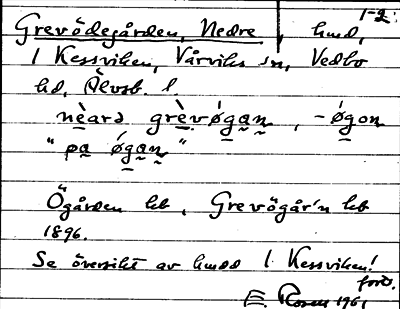 1-2.
Grevödegården, Nedre, hmd,
1 Kessviken, Vårviks sn, Vedbo
hd, Älvsb. l.
nèard grèvǿgan, -ǿgon
"pa ǿgan"
Ögården hb, Grevögår'n hb
1896.
Se översikt av hmdd 1 Kessviken!
forts.
E. Rosen 1961